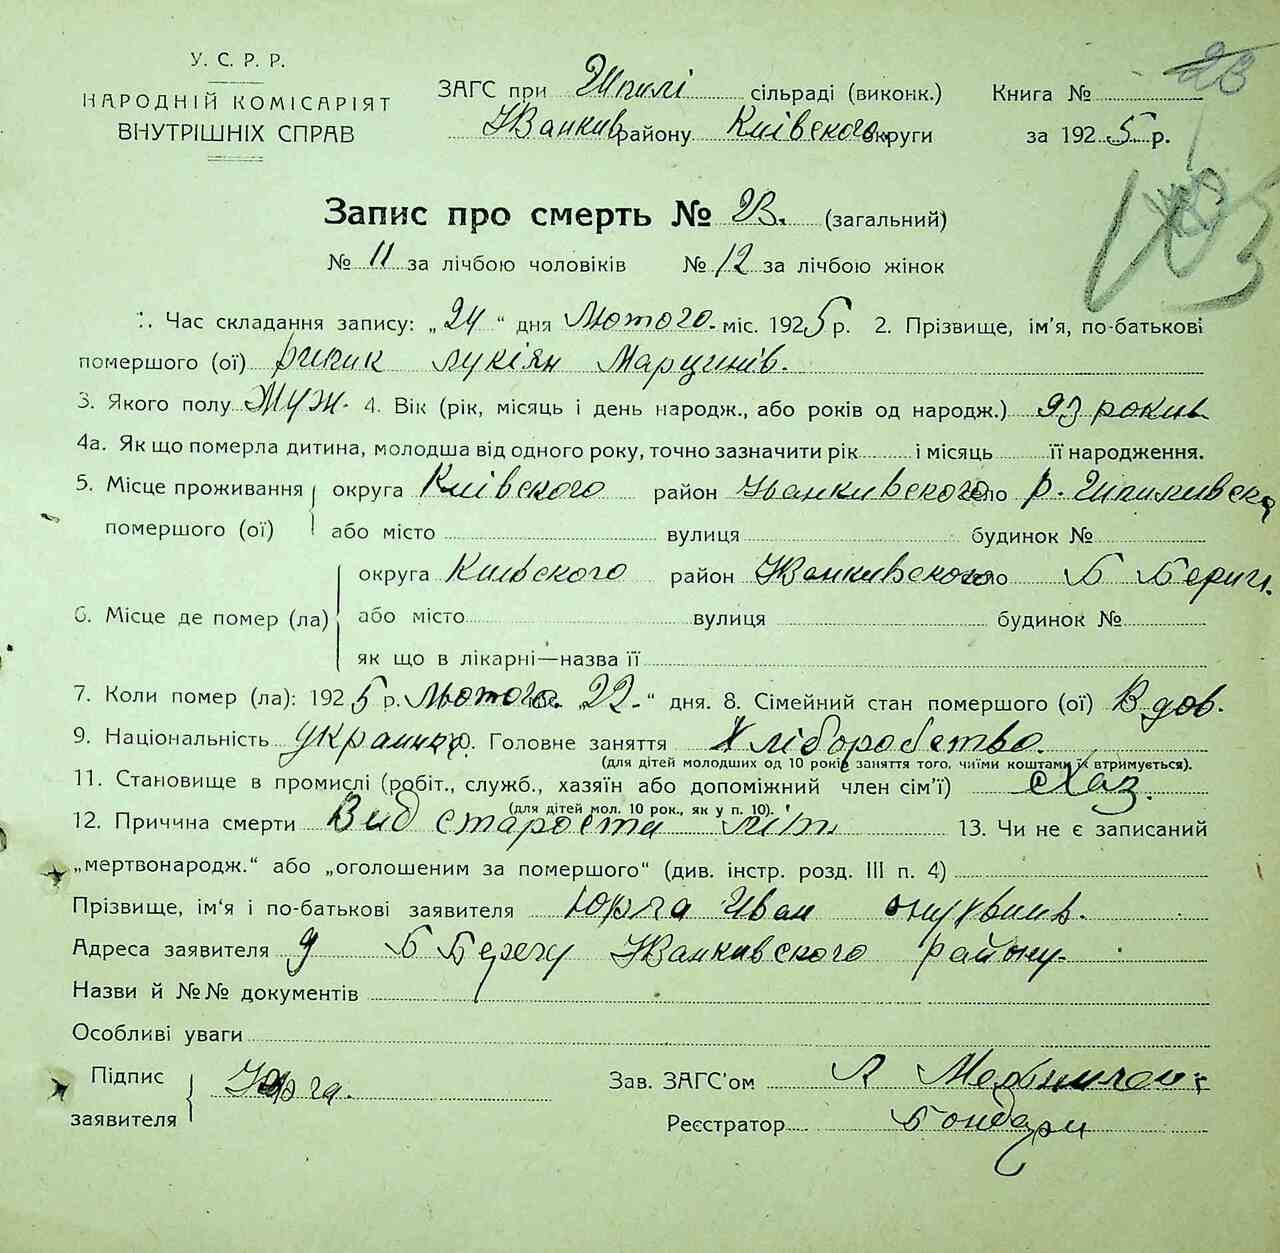 У. С. Р. Р.
НАРОДНІЙ КОМІСАРІЯТ
ВНУТРІШНІХ СПРАВ
ЗАГС при Шпилі сільраді (виконк.)
Иванкив району Київского округи
Книга № 23
за 1925 р.
103
Запис про смерть № 23. (загальний)
№ 11 за лічбою чоловіків № 12 за лічбою жінок
1. Час складання запису: „24“ дня Лютого міс. 1925 р. 2. Прізвище, ім'я, по-батькові
помершого (ої) Рипик Лукіян Марцинів.
3. Якого полу Муж. 4. Вік (рік, місяць і день народж., або років од народж.) 93 рокив
4а. Як що померла дитина, молодша від одного року, точно зазначити рік і місяць її народження.
5. Місце проживання помершого (ої) округа Київского район Иванкивского село Р.
або місто вулиця будинок №
6. Місце де помер (ла) округа Київского район Иванкивского село Б Берич.
або місто вулиця будинок №
як що в лікарні—назва її
7. Коли помер (ла): 1925 р. Лютого „22“ дня. 8. Сімейний стан помершого (ої) Вдов.
9. Національність Головне заняття Хліборобство.
(для дітей молодших од 10 років заняття того, чиїми коштами їх втримується).
11. Становище в промислі (робіт., служб., хазяїн або допоміжний член сім'ї) Хаз.
(для дітей мол. 10 рок., як у п. 10).
12. Причина смерти Вид старости літ 13. Чи не є записаний
„мертвонародж.“ або „оголошеним за помершого“ (див. інстр. розд. III п. 4)
Прізвище, ім'я і по-батькові заявителя Юрга Иван
Адреса заявителя Б Берегу Иванкивского району
Назви й №№ документів
Особливі уваги
Підпис заявителя Юрга.
Зав. ЗАГС'ом
Реєстратор Бондари